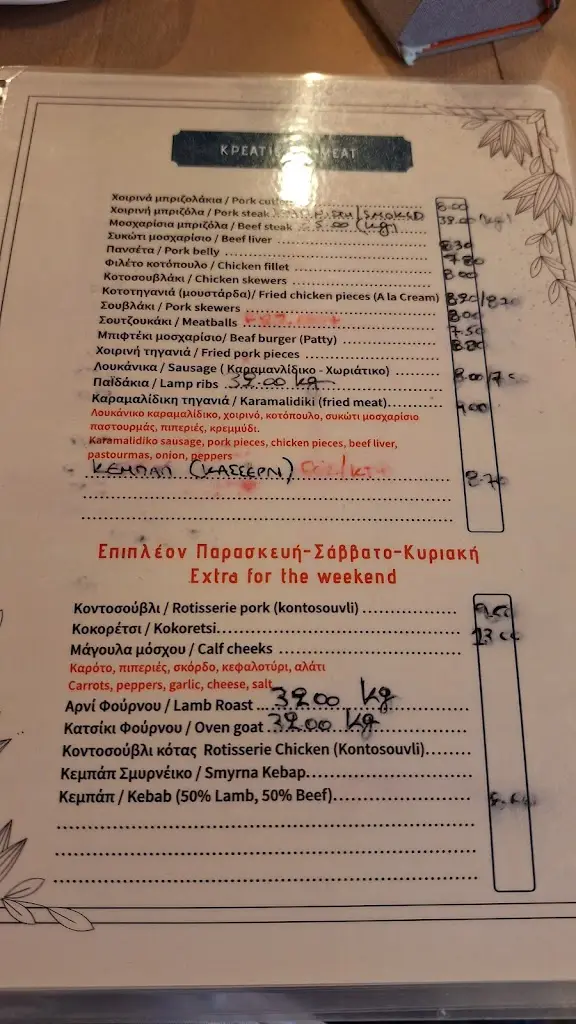 ΚΡΕΑΤΙΚΑ MEAT
Χοιρινά μπριζολάκια / Pork 8.00
Χοιρινή μπριζόλα / Pork steak SMOKED 38.00 (kg)
Μοσχαρίσια μπριζόλα / Beef steak (kg)
Συκώτι μοσχαρίσιο / Beef liver 8.30
Πανσέτα / Pork belly 7.80
Φιλέτο κοτόπουλο / Chicken fillet 8.00
Κοτοσουβλάκι / Chicken skewers
Κοτοτηγανιά (μουστάρδα)/ Fried chicken pieces (A la Cream) 8.20/8.20
Σουβλάκι / Pork skewers 8.00
Σουτζουκάκι / Meatballs 7.50
Μπιφτέκι μοσχαρίσιο/ Beaf burger (Patty) 8.80
Χοιρινή τηγανιά / Fried pork pieces
Λουκάνικα / Sausage ( Καραμανλίδικο - Χωριάτικο) 8.00/7.50
Παϊδάκια / Lamp ribs 39.00 kg
Καραμαλίδικη τηγανιά / Karamalidiki (fried meat) 9.00
Λουκάνικο καραμαλίδικο, χοιρινό, κοτόπουλο, συκώτι μοσχαρίσιο
παστουρμάς, πιπεριές, κρεμμύδι.
Karamalidiko sausage, pork pieces, chicken pieces, beef liver,
pastourmas, onion, peppers
ΚΕΜΠΑΠ (ΚΑΣΣΕΡΝ) 8.70
Επιπλέον Παρασκευή-Σάββατο-Κυριακή
Extra for the weekend
Κοντοσούβλι / Rotisserie pork (kontosouvli) 9.50
Κοκορέτσι / Kokoretsi 13.00
Μάγουλα μόσχου / Calf cheeks
Καρότο, πιπεριές, σκόρδο, κεφαλοτύρι, αλάτι
Carrots, peppers, garlic, cheese, salt
Αρνί Φούρνου / Lamb Roast 39.00 kg
Κατσίκι Φούρνου / Oven goat 39.00 kg
Κοντοσούβλι κότας Rotisserie Chicken (Kontosouvli)
Κεμπάπ Σμυρνέικο / Smyrna Kebap
Κεμπάπ / Kebab (50% Lamb, 50% Beef)